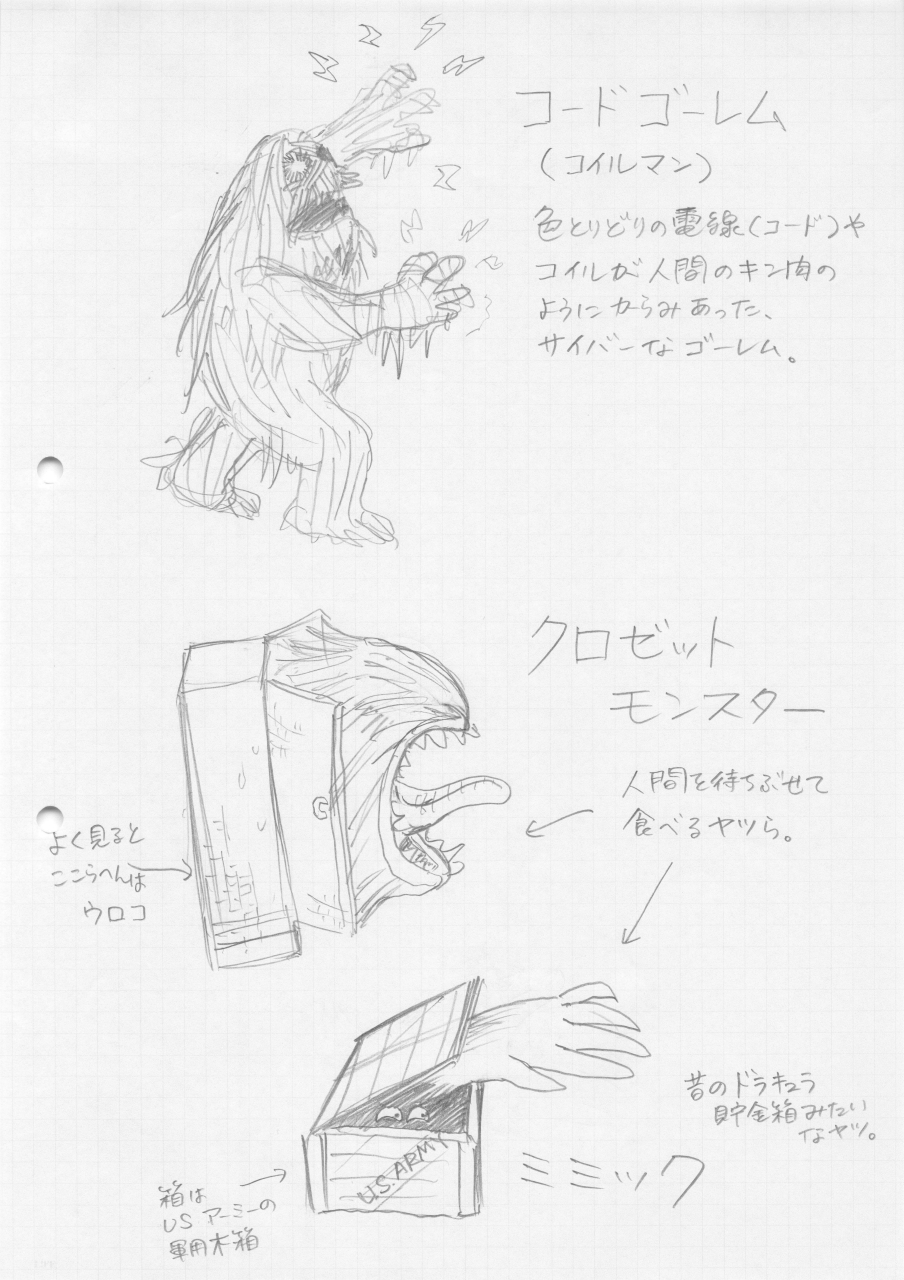 コードゴーレム
(コイルマン)
色とりどりの電線(コード)や
コイルが人間のキン肉の
ようにからみあった、
サイバーなゴーレム。
クロゼット
モンスター
人間を待ちぶせて
食べるヤツら。
よく見ると
ここらへんは
ウロコ
昔のドラキュラ
貯金箱みたい
なヤツ。
U.S.ARMY
ミミック
箱は
USアーミーの
軍用木箱